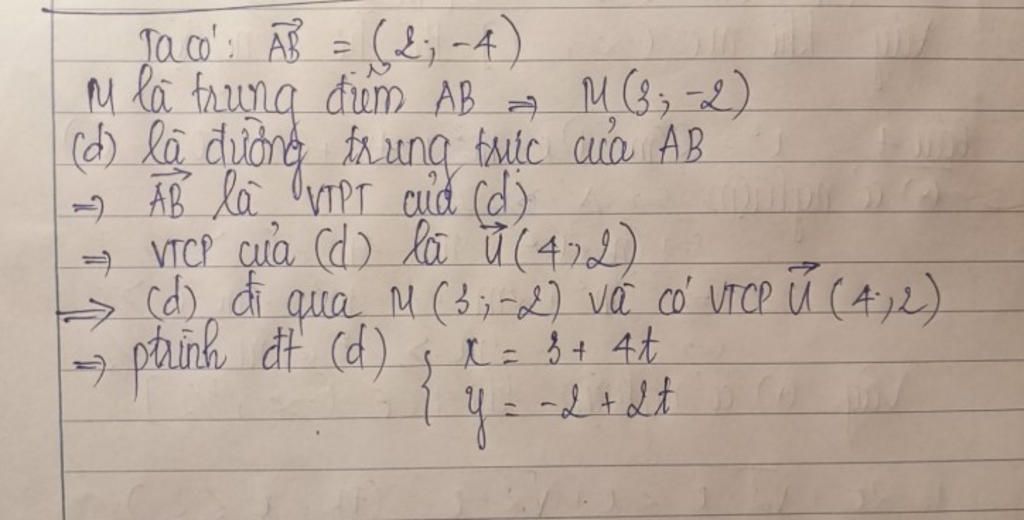 Ta có: AB = (2; -4)
M là trung điểm AB => M(3; -2)
(d) là đường trung trực của AB
=> AB là VTPT của (d)
=> VTCP của (d) là u(4;2)
=> (d) đi qua M(3;-2) và có VTCP u(4;2)
=> ptrình đt (d) { x = 3 + 4t
y = -2 + 2t